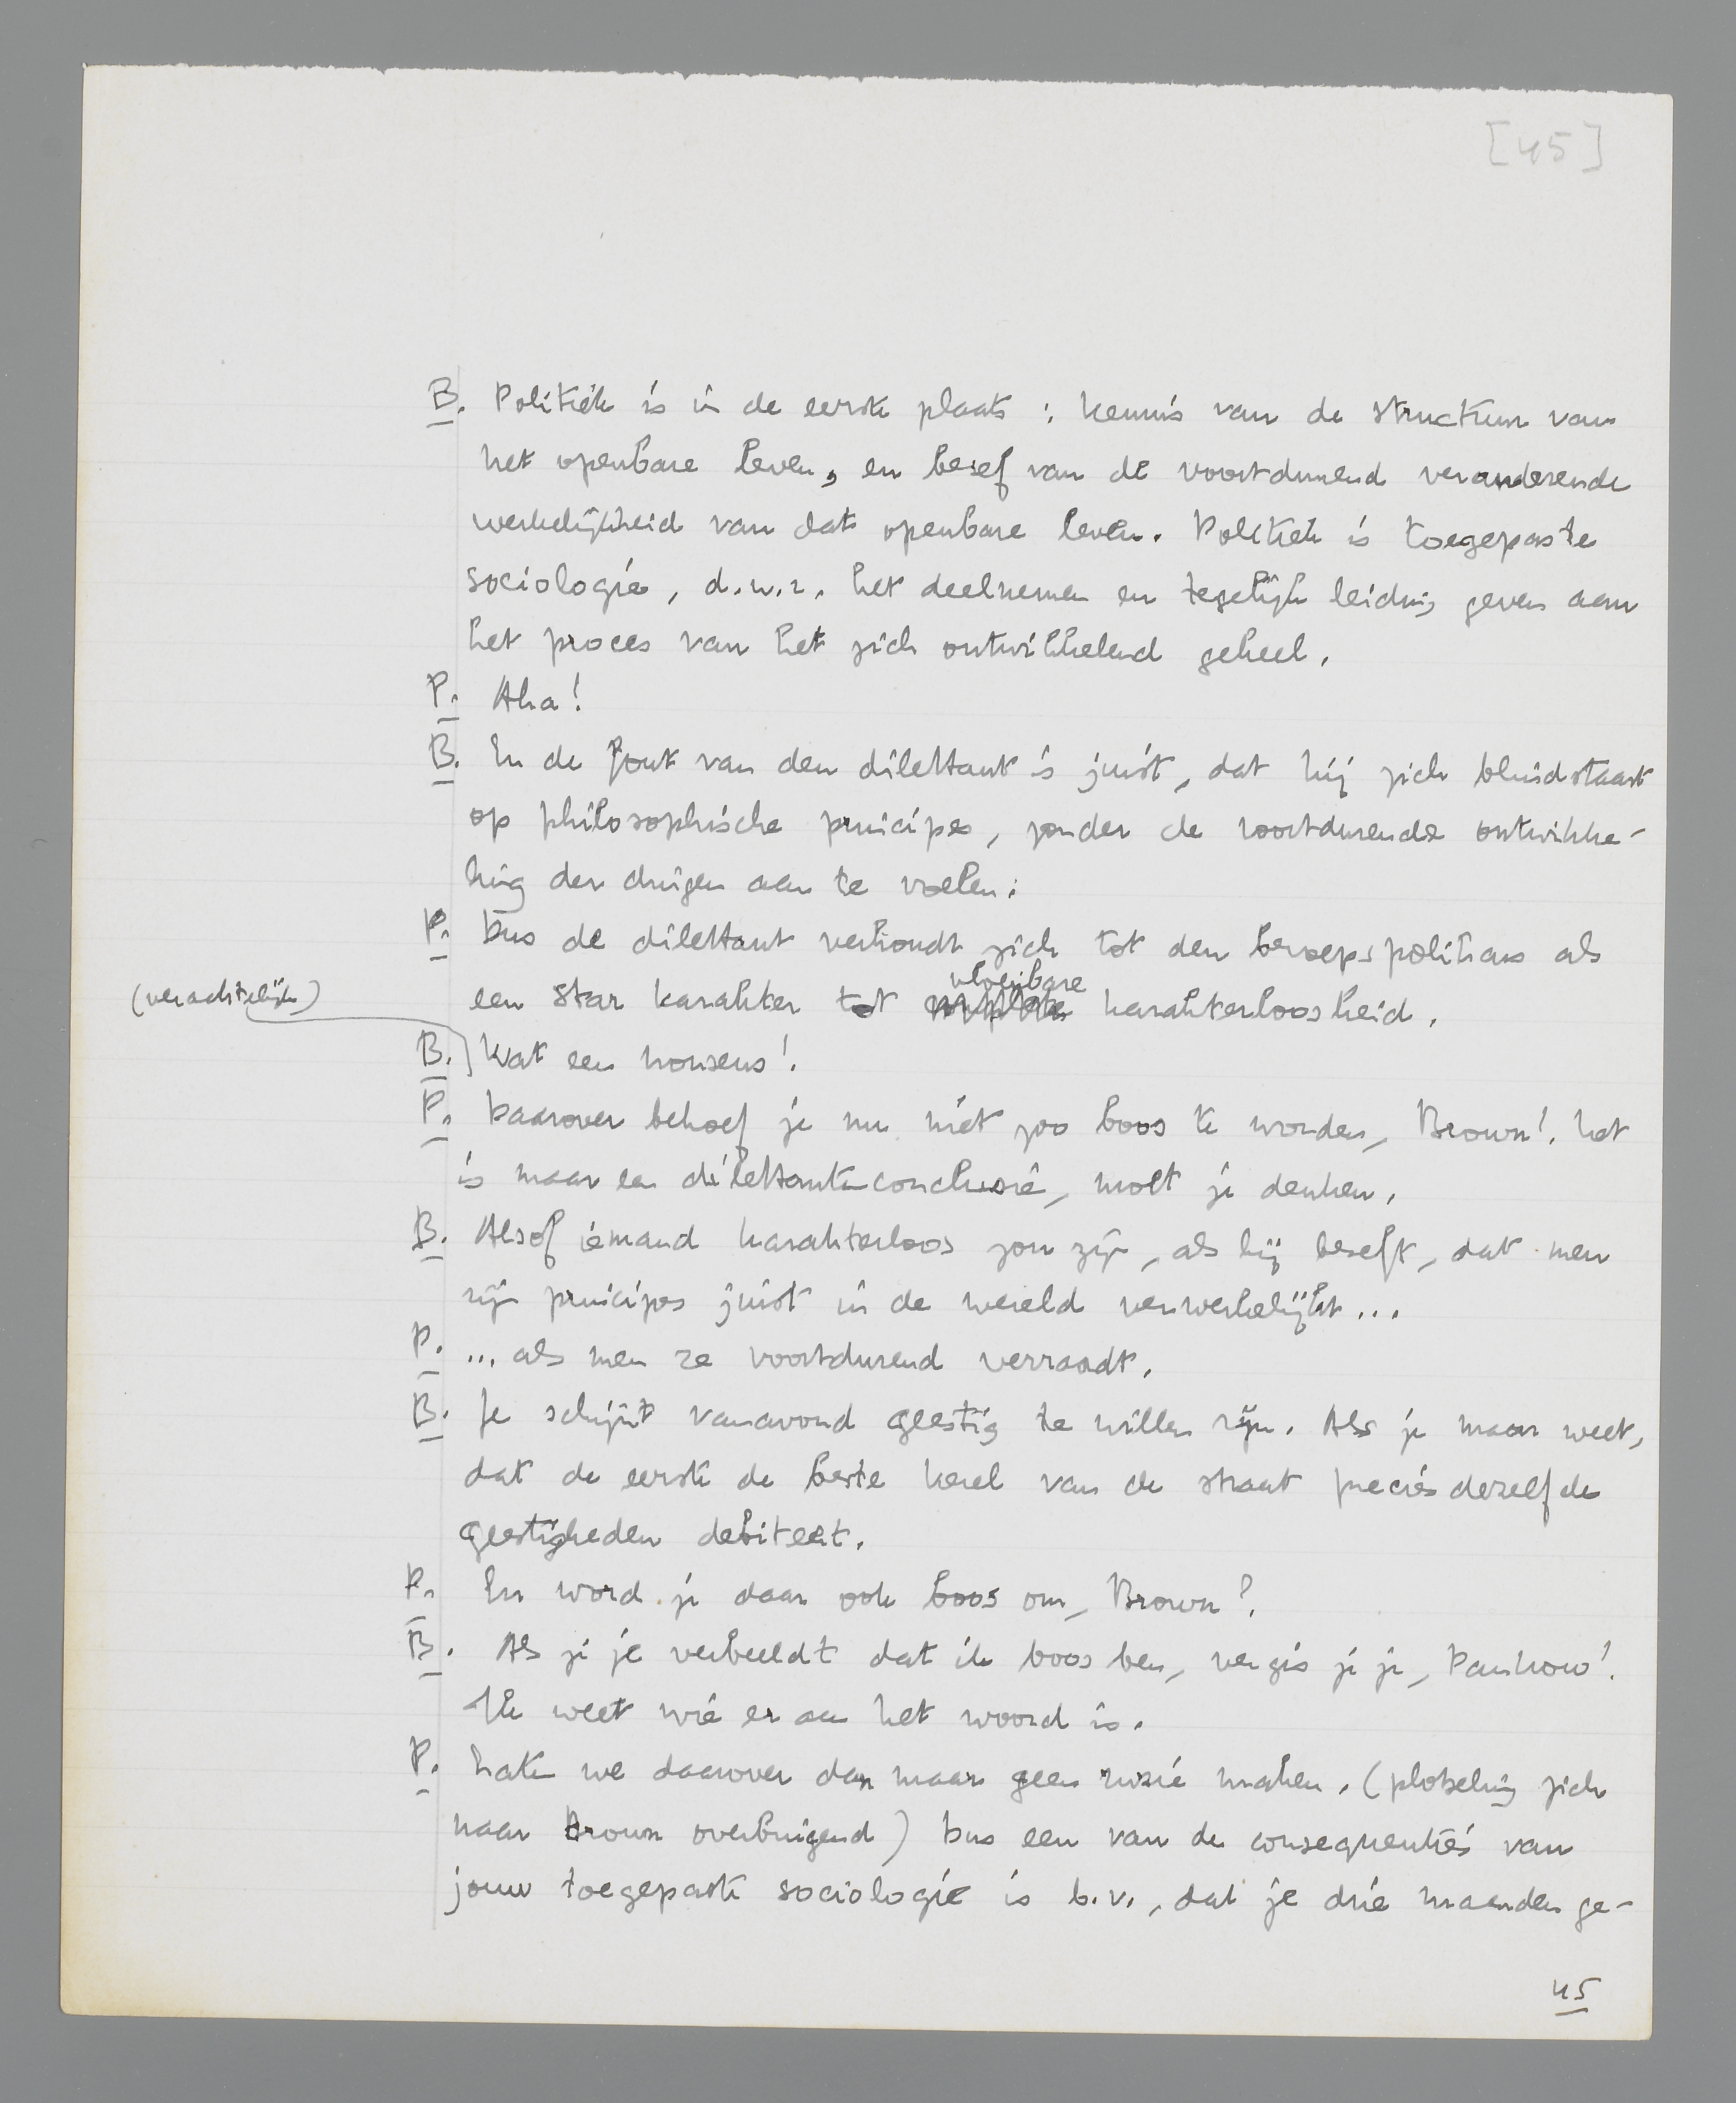 [45]
B. Politiek is in de eerste plaats: kennis van de structuur van
het openbare leven, en besef van de voortdurend veranderende
werkelijkheid van dat openbare leven. Politiek is toegepaste
sociologie, d.w.z. het deelnemen en tegelijk leiding geven aan
het proces van het zich ontwikkelend geheel.
P. Aha!
B. En de fout van den dilettant is juist, dat hij zich blindstaart
op philosophische principes, zonder de voortdurende ontwikke-
ling der dingen aan te voelen.
P. Dus de dilettant verhoudt zich tot den beroepspoliticus als
een star karakter tot vloeibare karakterloosheid.
(verachtelijk)
B. Wat een nonsens!
P. Daarover behoef je nu niet zoo boos te worden, Brown! Het
is maar een dilettantenconclusie, moet je denken.
B. Alsof iemand karakterloos zou zijn, als hij beseft, dat men
zijn principes juist in de wereld verwerkelijkt...
P. ... als men ze voortdurend verraadt.
B. Je schijnt vanavond geestig te willen zijn. Als je maar weet,
dat de eerste de beste kerel van de straat precies dezelfde
geestigheden debiteert.
P. En word je daar ook boos om, Brown?
B. Als je je verbeeldt dat ik boos ben, vergis je je, Panhow!
Ik weet wie er aan het woord is.
P. Laten we daarover dan maar geen ruzie maken. (plotseling zich
naar Brown overbuigend) Dus een van de consequenties van
jouw toegepaste sociologie is b.v., dat je drie maanden ge-
45